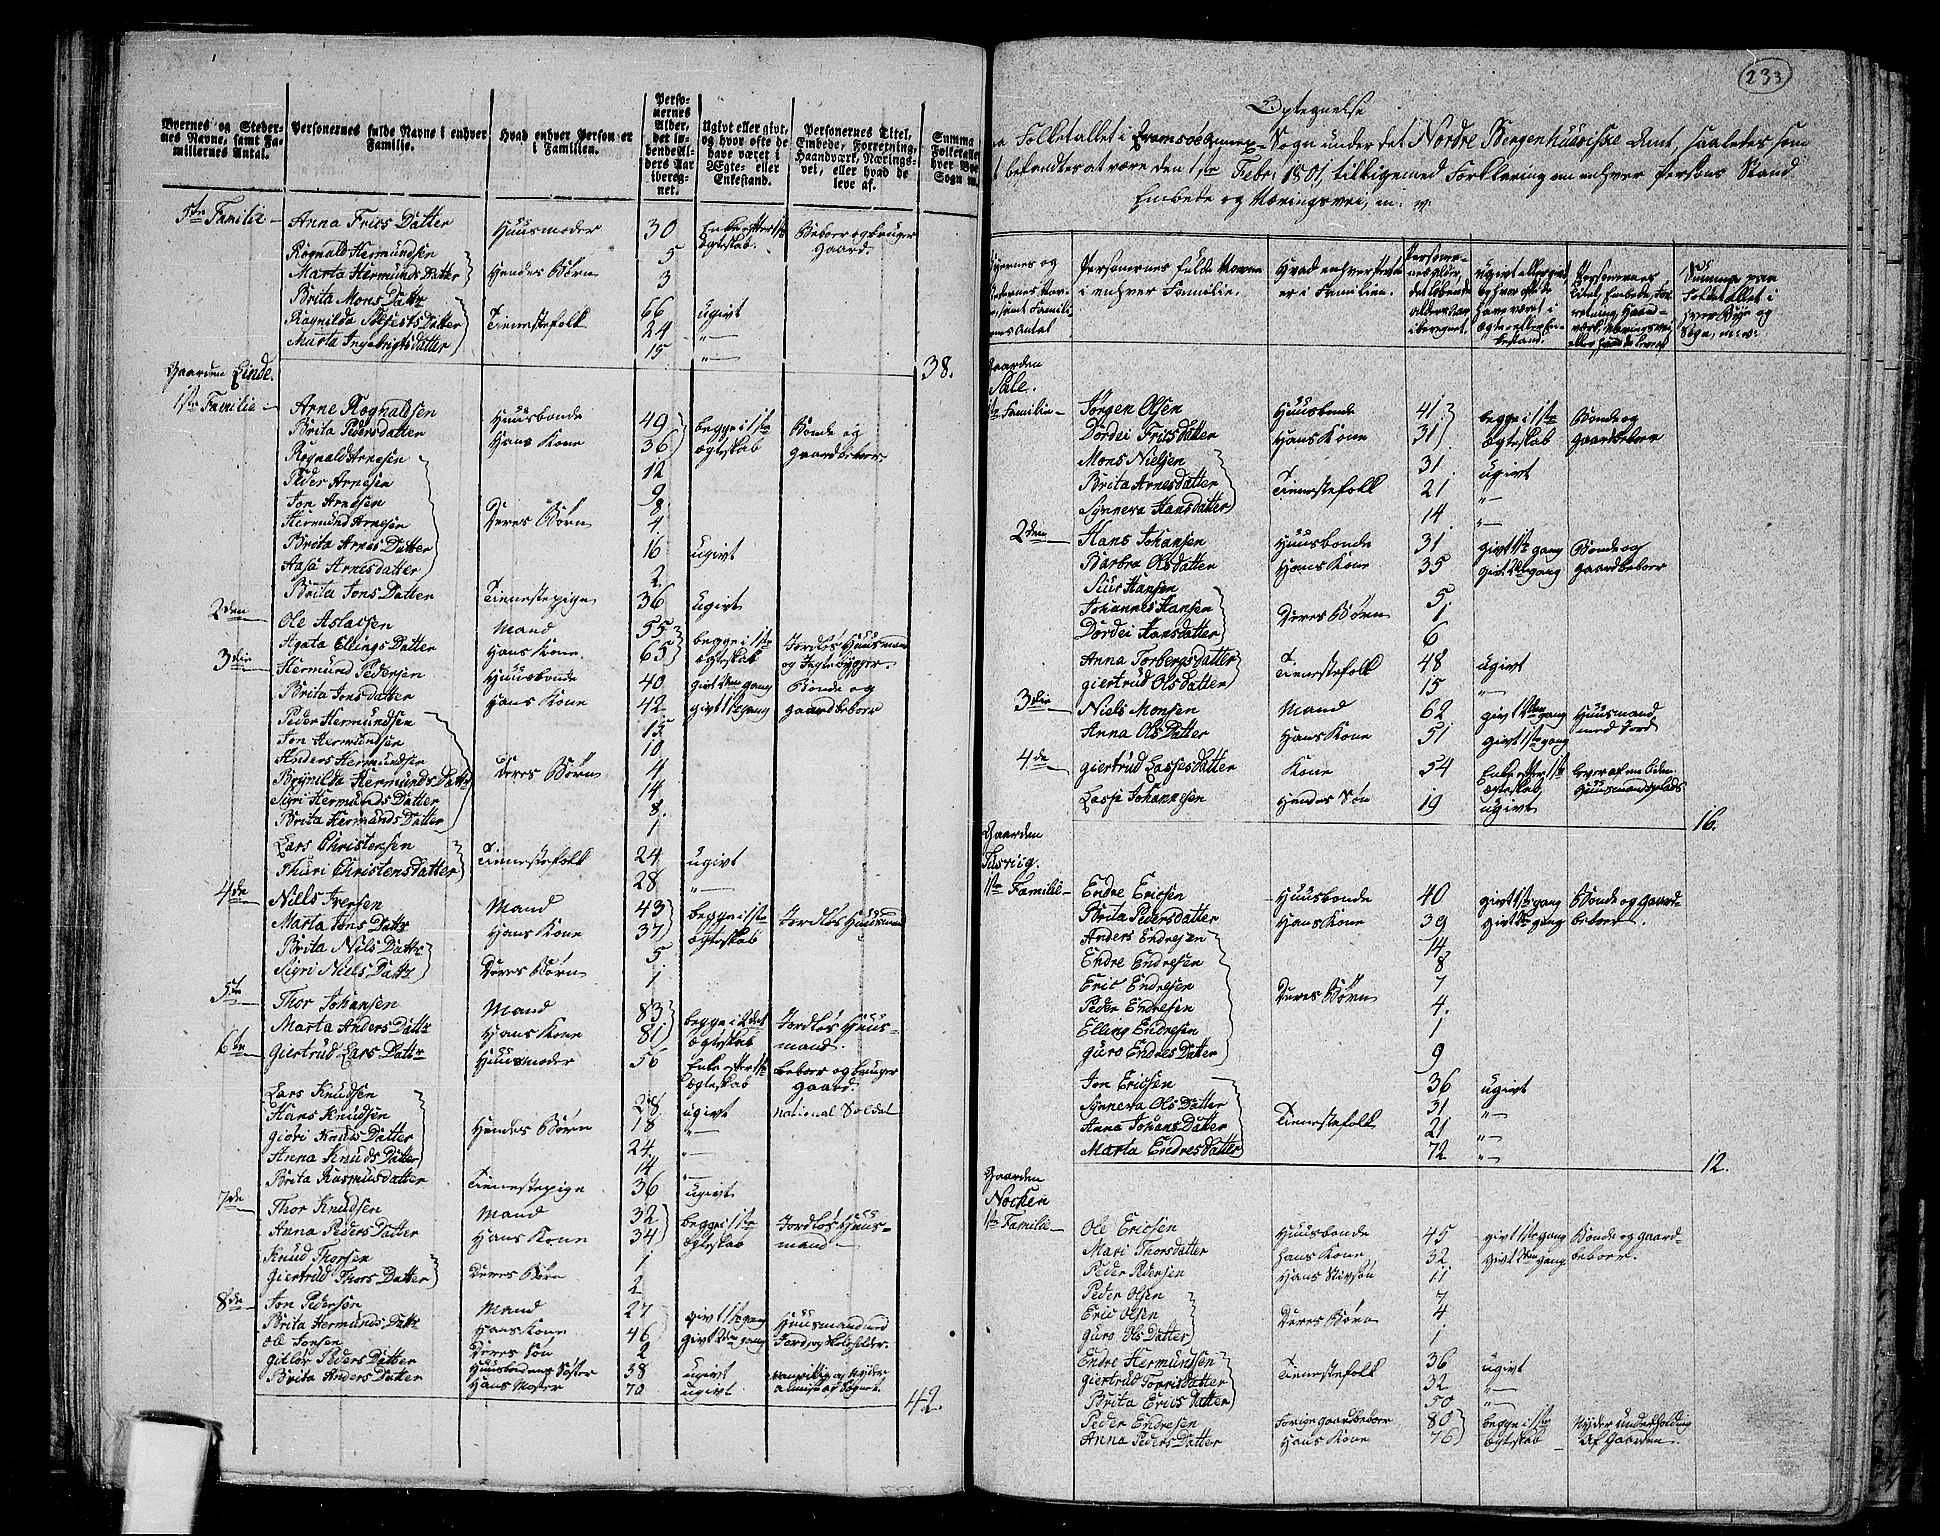 Byernes og Stedernes Navne, samt Familiernes Antal.
Personernes fulde Navne i enhver Familie.
Hvad enhver Person er i Familien.
Personernes Alder, det løbende Alders Aar iberegnet.
Ugivt eller givt, og hvor ofte de have været i Ægte- eller Enkestand.
Personernes Titel, Embede, Forretning, Haandværk, Næringsvei, eller hvad de leve af.
Summa Folketallet hver Bye Sogn
5te Familie Anna Frics Datter Huusmoder 30 Enke efter 1ste Ægteskab. Beboer og bruger Gaard.
Rognald Hermundsen 5
Marta Hermunds Datter Hendes Børn 3
Brita Mons Dattr 66 ugivt
Ragnilda Sjvestsdatter Tienestefolk 24 "
Marta Ingebrigtsdatter 15 "
38.
Gaarden Linde.
1ste Familie Arne Rognaldsen Huusbonde 49 begge i 1ste Bonde og
Brita Pedersdatter Hans Kone 36 Ægteskab Gaardbeboer
Rognald Arnesen 12
Peder Arnesen 9
Jon Arnesen Deres Børn 8
Hermund Arnesen 4
Brita Arnes Datter 16 ugivt
Aase Arnesdatter 2
Brita Jons Datter Tienestepige 36 ugivt
2den Ole Aslacsen Mand 55 begge i 1ste Jordløs Huusmand
Agata Ellings Datter Hans Kone 65 Ægteskab og Jegtebygger
3die Hermund Pedersen Huusbonde 40 givt 2den gang Bonde og
Brita Jonsdatter Hans Kone 42 givt 1ste gang gaardbeboer
Peder Hermundsen 15
Jon Hermundsen 10
Anders Hermundsen 4
Brynilda Hermunds Dattr Deres Børn 14
Sigri Hermunds Datter 8.
Brita Hermunds Datter 1
Lars Christensen Tienestefolk 24 ugivt
Thuri Christensdatter 28 "
4de Niels Iversen Mand 43 begge i 1ste Jordløs Huusmand
Marta Jons Dattr Hans Kone 37 Ægteskab
Brita Niels Dattr 5
Sigri Niels Dattr Deres Børn 1
5te Thor Johansen Mand 83 begge i 2det Jordløs Huus-
Marta Anders Dattr Hans Kone 81 Ægteskab mand.
6te Giertrud Lars Dattr Huusmoder 56 Enke efter 1ste Ægteskab beboer og bruger Gaard.
Lars Knudsen 28 ugivt National Soldat
Hans Knudsen 18 "
Giøri Knuds Datter Hendes Børn 24. "
Anna Knuds Datter 14 "
Brita Rasmusdatter Tienestepige 36 ugivt
7de Thor Knudsen Mand 32 begge i 1ste Jordløs Huus-
Anna Peders Datter Hans Kone 34 Ægteskab mand
Knud Thorsen 1
Giertrud Thors Datter Deres Børn 2
8de Jon Pedersen Mand 27 givt 1ste gang Huusmand med
Brita Hermunds Dattr Hans Kone 46 givt 2den gang Jord, og Skoleholder.
Ole Jonsen Deres Søn 2
Gitlør Peders Datter Huusbondens Søster 38 ugivt vanvittig og Nyder
Brita Anders Datter Hans Moster 70 ugivt almisse af Sognet.
42.
233
Optegnelse
Folketallet i Framsøe annex-Sogn under det Nordre Bergenhuusiske Amt, saaledes som
befandtes at være den 1ste Febr. 1801, tilligemed Forklaring om enhver Persons Stand
Embede og Næringsvei, m. v.
Byernes og Stedernes Navne, samt Familiernes Antal
Personernes fulde Navne i enhver Familie.
Hvad enhver Person er i Familien.
Personernes alder, det løbende alders Aar iberegnet.
ugivt eller givt og hvor ofte de have været i Ægte- eller Enkestand.
Personernes titel, Embede, Forretning, Haandværk, Næringsvei eller hvad de lever af
Summa paa Folketallet i hver Bye og Sogn, m: v:
Gaarden
Sale.
1ste Familie Jørgen Olsen Huusbonde 41. begge i 1ste Bonde og
Dordei Fricsdatter Hans Kone 31 Ægteskab gaardbeboer
Mons Nielsen 31 ugivt
Brita Arnesdatter Tienestefolk 21 "
Synneva Hansdatter 14 "
2den Hans Johansen Huusbonde 31 givt 1ste gang Bonde og
Barbra Olsdatter Hans Kone 35 givt 2den gang gaardbeboer
Siur Hansen 5
Johannes Hansen Deres Børn 1
Dordei Hansdatter 6
Anna Torbergsdatter Tienestefolk 48 ugivt
Giertrud Olsdatter 15 "
3die Niels Monsen Mand 62 givt 2den gang Huusmand
Anna Ols Datter Hans Kone 51 givt 1ste gang med Jord
4de Giertrud Lasses Datter Kone 54 Enke efter 1ste Ægteskab Lever af en Øden Huusmandsplads
Lasse Johannesen Hendes Søn 19 ugivt
16.
Gaarden
1ste Familie Endre Ericsen Huusbonde 40 givt 1ste gang Bonde og gaard-
Brita Pedersdatter Hans Kone 39 givt 2den gang beboer.
Anders Endresen 14
Endre Endresen 8
Eric Endresen 7
Peder Endresen Deres Børn 4.
Elling Endresen 1
Guro Endres Datter 9
Jon Ericsen 36 ugivt
Synneva Ols Datter 31 "
Anna Johans Datter Tienestefolk 21 "
Marta Endresdatter 72 "
12.
Gaarden
Nocken
1ste Familie Ole Ericsen Huusbonde 45 givt 1ste gang Bonde og gaard-
Mari Thorsdatter Hans Kone 32 givt 2den gang beboer.
Peder Pedersen Hans Stivsøn 11
Peder Olsen 7
Eric Olsen Deres Børn 4
Guro Ols Datter 1.
Endre Hermundsen Tienestefolk 36 ugivt
Giertrud Torrisdatter 32 "
Brita Erics Datter 50 "
Peder Endresen Forige gaardbeboer 80 begge i 1ste Nyder underholdning
Anna Peders Datter Hans Kone 76 Ægteskab Af Gaarden.